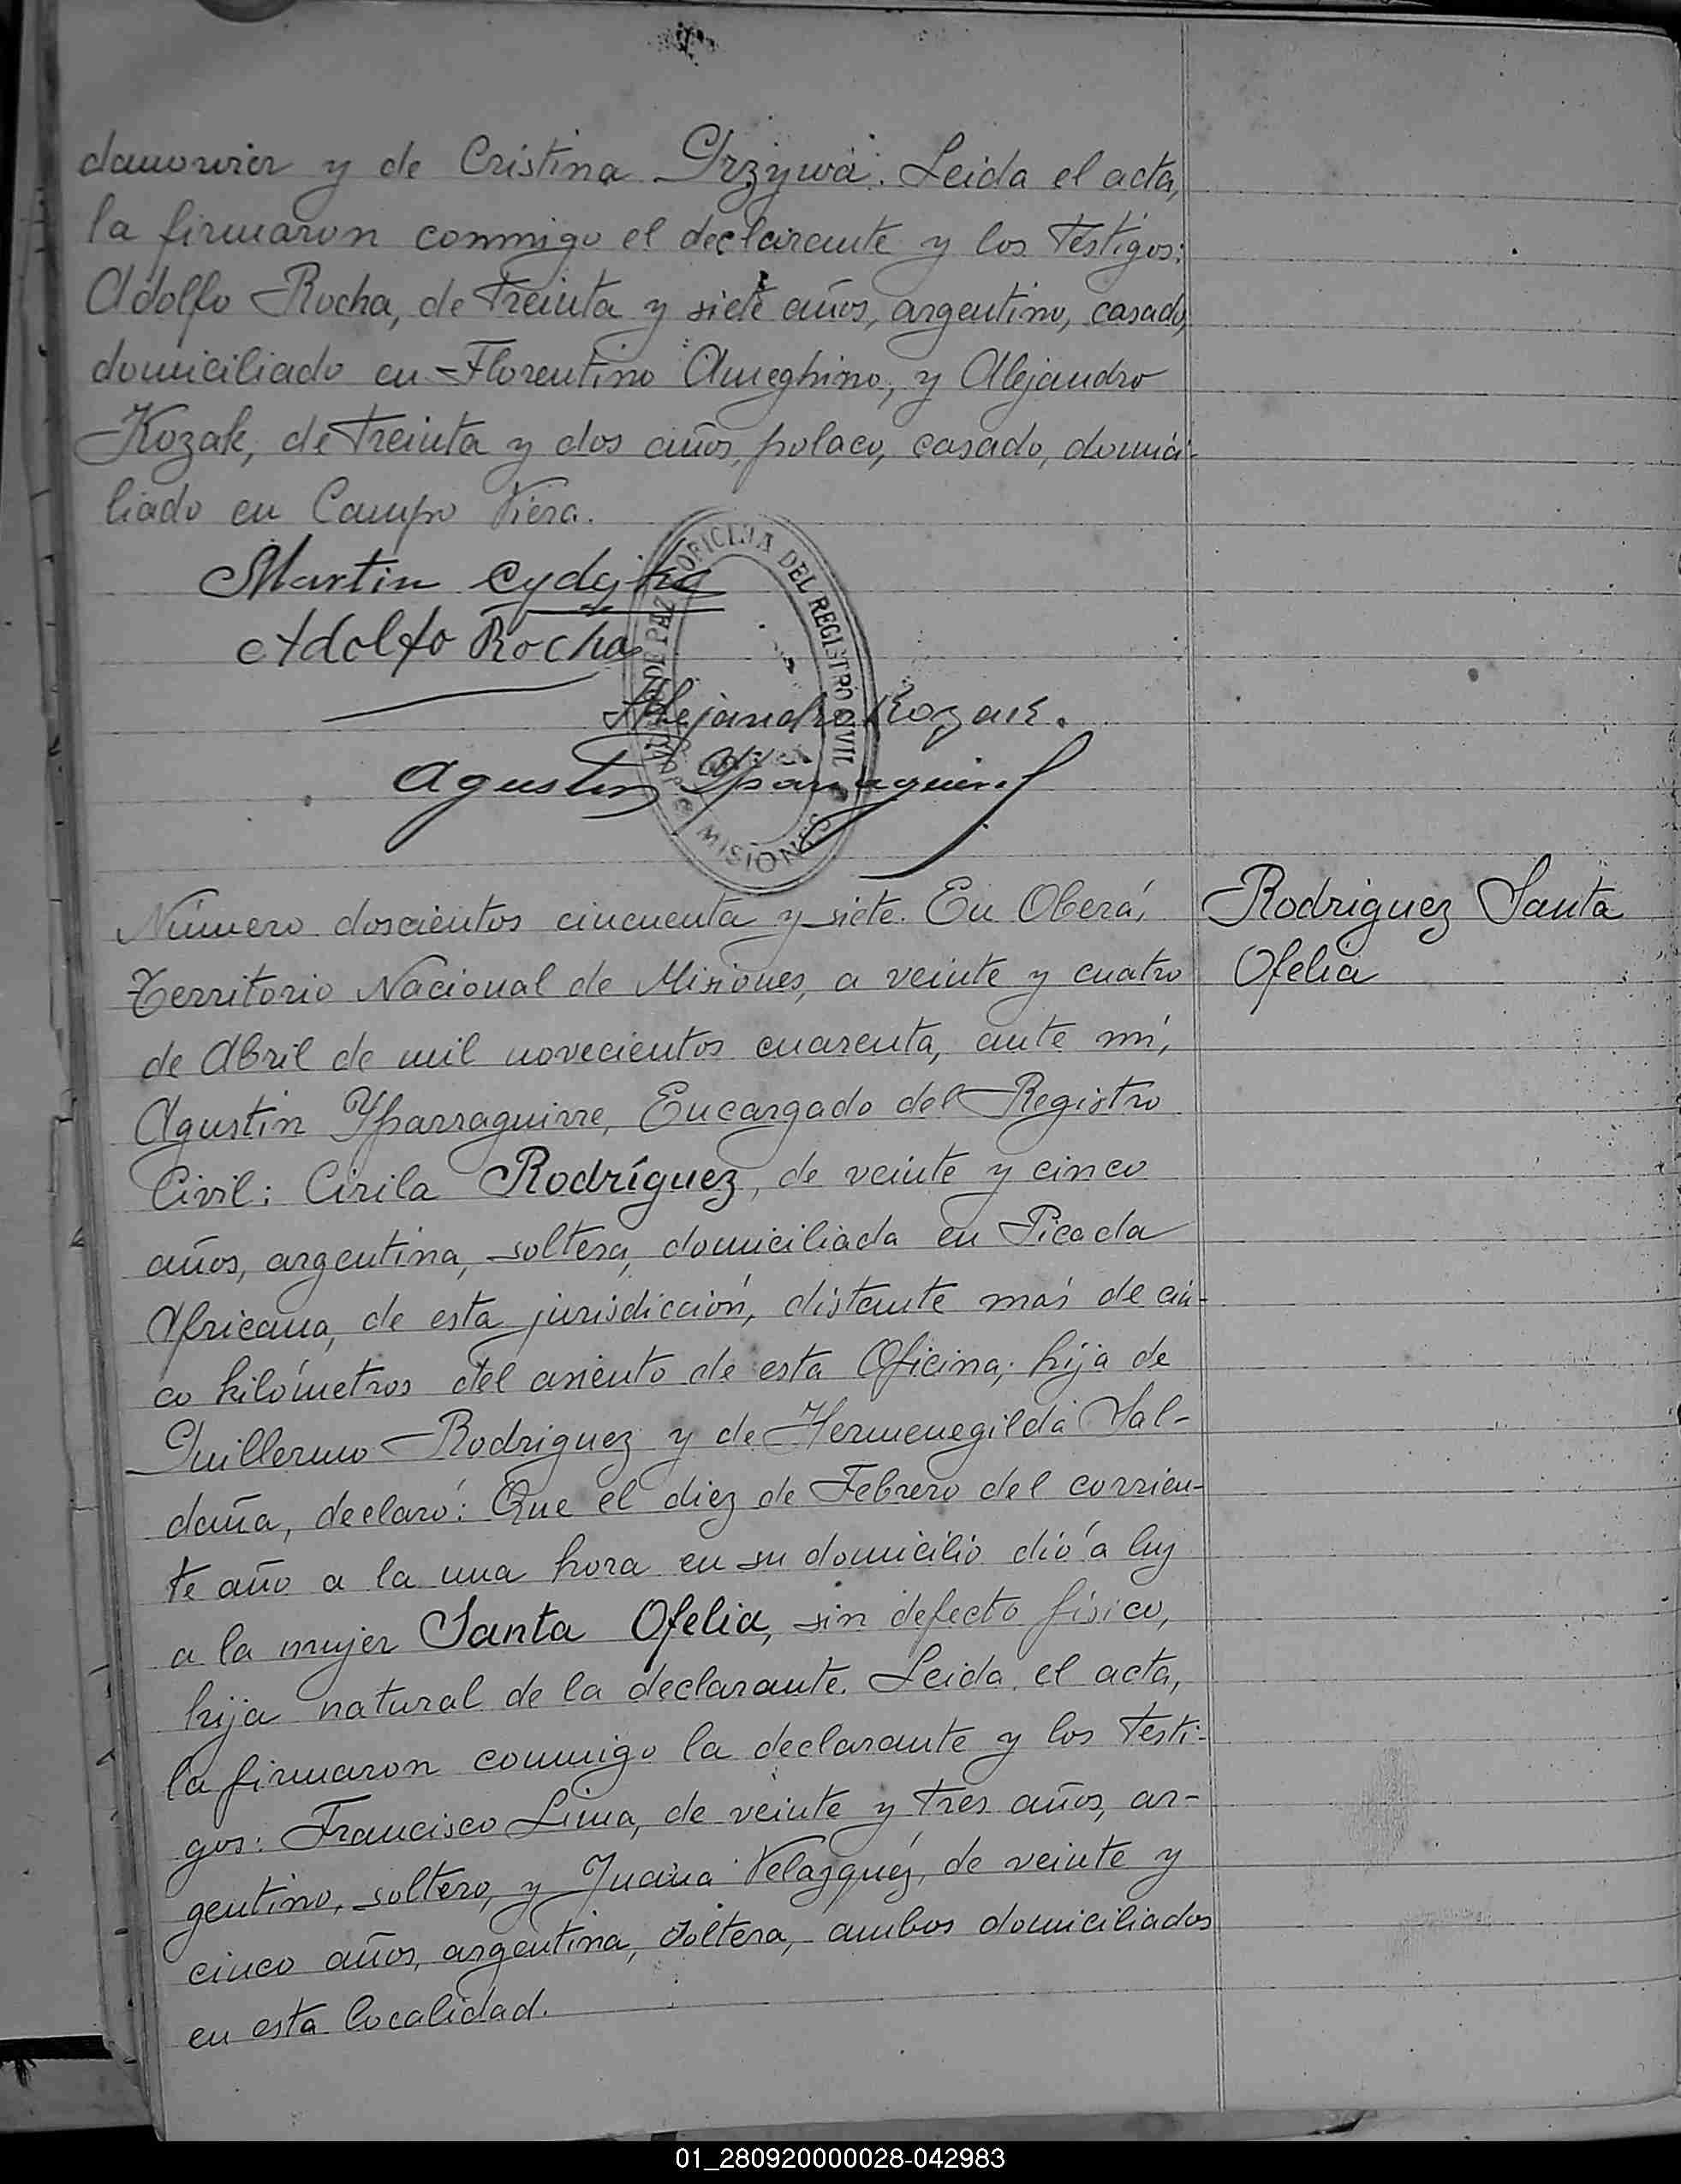 damowicz y de Cristina Grzywa. Leida el acta,
la firmaron conmigo el declarante y los testigos:
Adolfo Rocha, de treinta y siete años, argentino, casado,
domiciliado en Florentino Ameghino, y Alejandro
Kozak, de treinta y dos años, polaco, casado, domici-
liado en Campo Viera.
OFICINA DEL REGISTRO CIVIL
DE PAZ
MISIONES
Martin
Adolfo Rocha
Alejandro Kozak.
Agustin Yparraguirre
Número doscientos cincuenta y siete. En Oberá,
Territorio Nacional de Misiones, a veinte y cuatro
de Abril de mil novecientos cuarenta, ante mí,
Agustin Yparraguirre, Encargado del Registro
Civil: Cirila Rodríguez, de veinte y cinco
años, argentina, soltera, domiciliada en Picada
Africana, de esta jurisdicción, distante más de cin-
co kilómetros del asiento de esta Oficina; hija de
Guillermo Rodriguez y de Hermenegilda Sal-
daña, declaró: Que el diez de Febrero del corrien-
te año a la una hora en su domicilio dió a luz
a la mujer Santa Ofelia, sin defecto físico,
hija natural de la declarante. Leida el acta,
la firmaron conmigo la declarante y los testi-
gos: Francisco Lima, de veinte y tres años, ar-
gentino, soltero, y Juana Velazquez, de veinte y
cinco años, argentina, soltera, ambos domiciliados
en esta localidad.
Rodriguez Santa
Ofelia
01_280920000028-042983